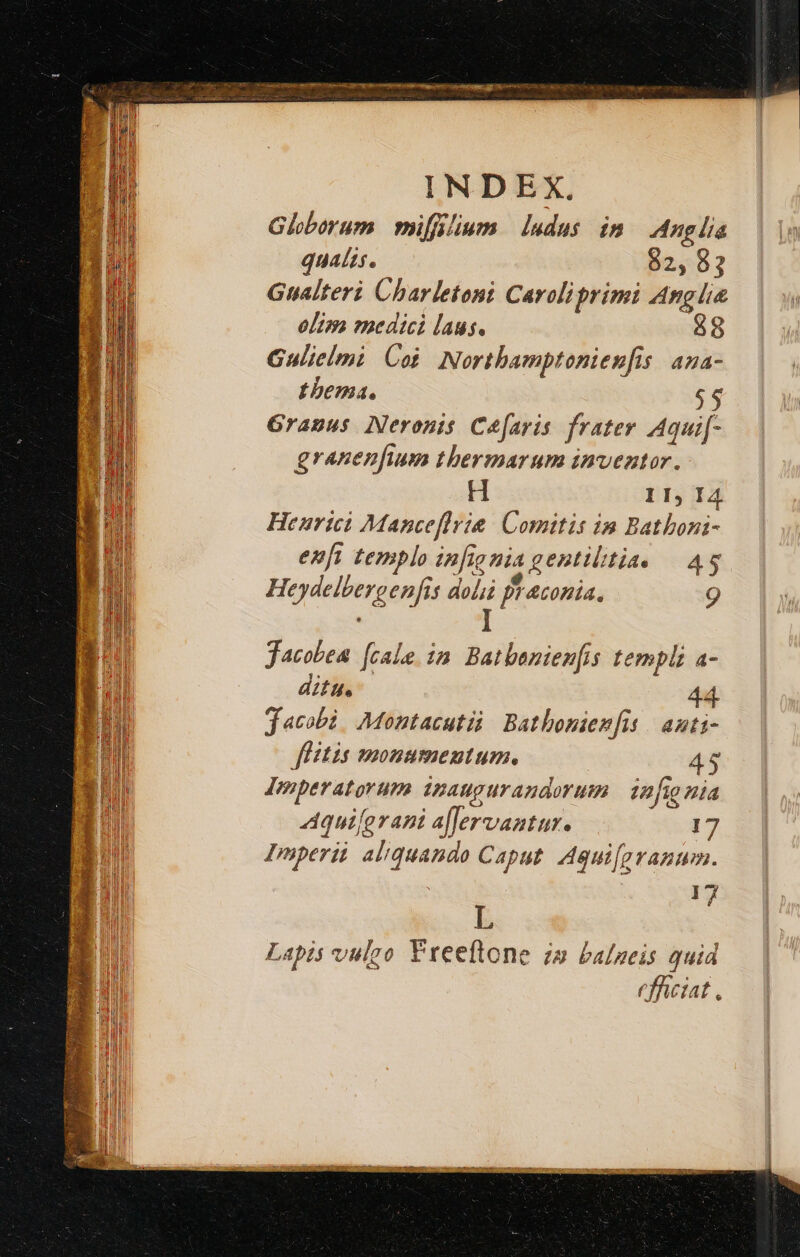 INDEX.
Globorum miſſilium ludus in Anglia
qualis. 82, 83
Gualteri Charletoni Caroli primi Angliæ
olim medici laus. 88
Gulielmi Coi Northamptonienſis ana-
thema. 55
Granus Neronis Cæſaris frater Aquiſ-
granenſium thermarum inventor.
H 11, 14
Henrici Manceſtriæ Comitis in Bathoni-
enſi templo inſignia gentilitia. 45
Heydelbergenſis dolii præconia. 9
I
Jacobea ſcala in Bathonienſis templi a-
ditu. 44
Jacobi Montacutii Bathonienſis anti-
ſtitis monumentum. 45
Imperatorum inaugurandorum inſignia
Aquiſgrani aſſervantur. 17
Imperii aliquando Caput Aquiſgranum.
17
L
Lapis vulgo Freeſtone in balneis quid
efficiat.